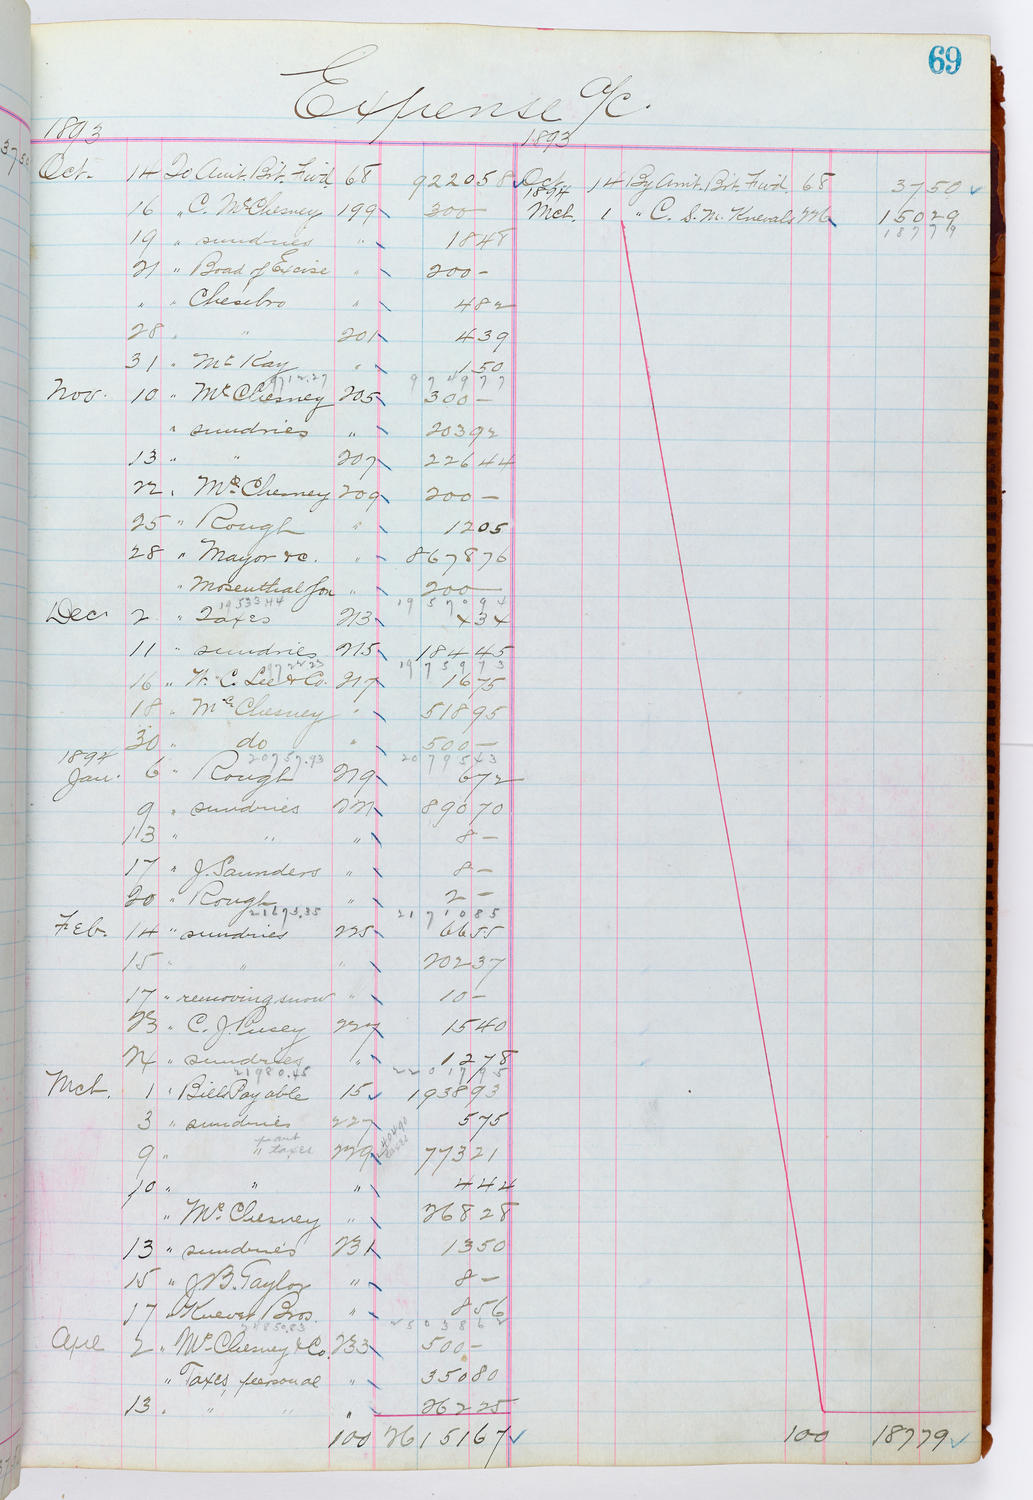 69
Expense a/c.
1893 1893
Oct. 14 To Amt. Bt. Fwd. 68 9220 58 Oct. 14 By Amt. Bt. Fwd. 68 37 50
16 " C. McChesney 199 300 — 1894 Mch. 1 " C. S. M. Knevals 226 150 29
19 " sundries " 18 48 187 79
21 " Boad of Excise " 200 —
" " Chesebro " 4 82
28 " " 201 4 39
31 " McKay " 1 50
9712.27 9749 77
Nov. 10 " McChesney 205 300 —
" sundries " 203 92
13 " " 207 226 44
22 " McChesney 209 200 —
25 " Rough " 12 05
28 " Mayor &c. " 8678 76
" Mosenthal fon " 200 —
19533 44 19570 94
Dec. 2 " Taxes 213 4 34
11 " sundries 215 184 45
9722 23 19759 73
16 " W. C. Lee & Co. 217 16 75
18 " McChesney " 518 95
30 " do " 500 —
20757.93 20795 43
1894
Jan. 6 " Rough 219 6 72
9 " sundries 221 890 70
13 " " " 8 —
17 " J. Saunders " 8 —
20 " Rough 2 —
21673.35 21710 85
Feb. 14 " sundries 225 66 55
15 " " " 202 37
17 " removing snow " 10 —
23 " C. J. Pusey 227 15 40
24 " sundries " 12 78
21980.45 22017 95
Mch. 1 " Bills Payable 15 1938 93
3 " sundries 227 5 75
9 " " taxes 229 773 21
10 " " " 4 44
" McChesney " 268 28
13 " sundries 231 13 50
15 " J. B. Taylor " 8 —
17 " Kuever Bros. " 8 56
24850.83 25038 62
Apl 2 " McChesney & Co. 233 500 —
" Taxes, personal " 350 80
13 " " " " 262 25
100 26151 67 100 187 79